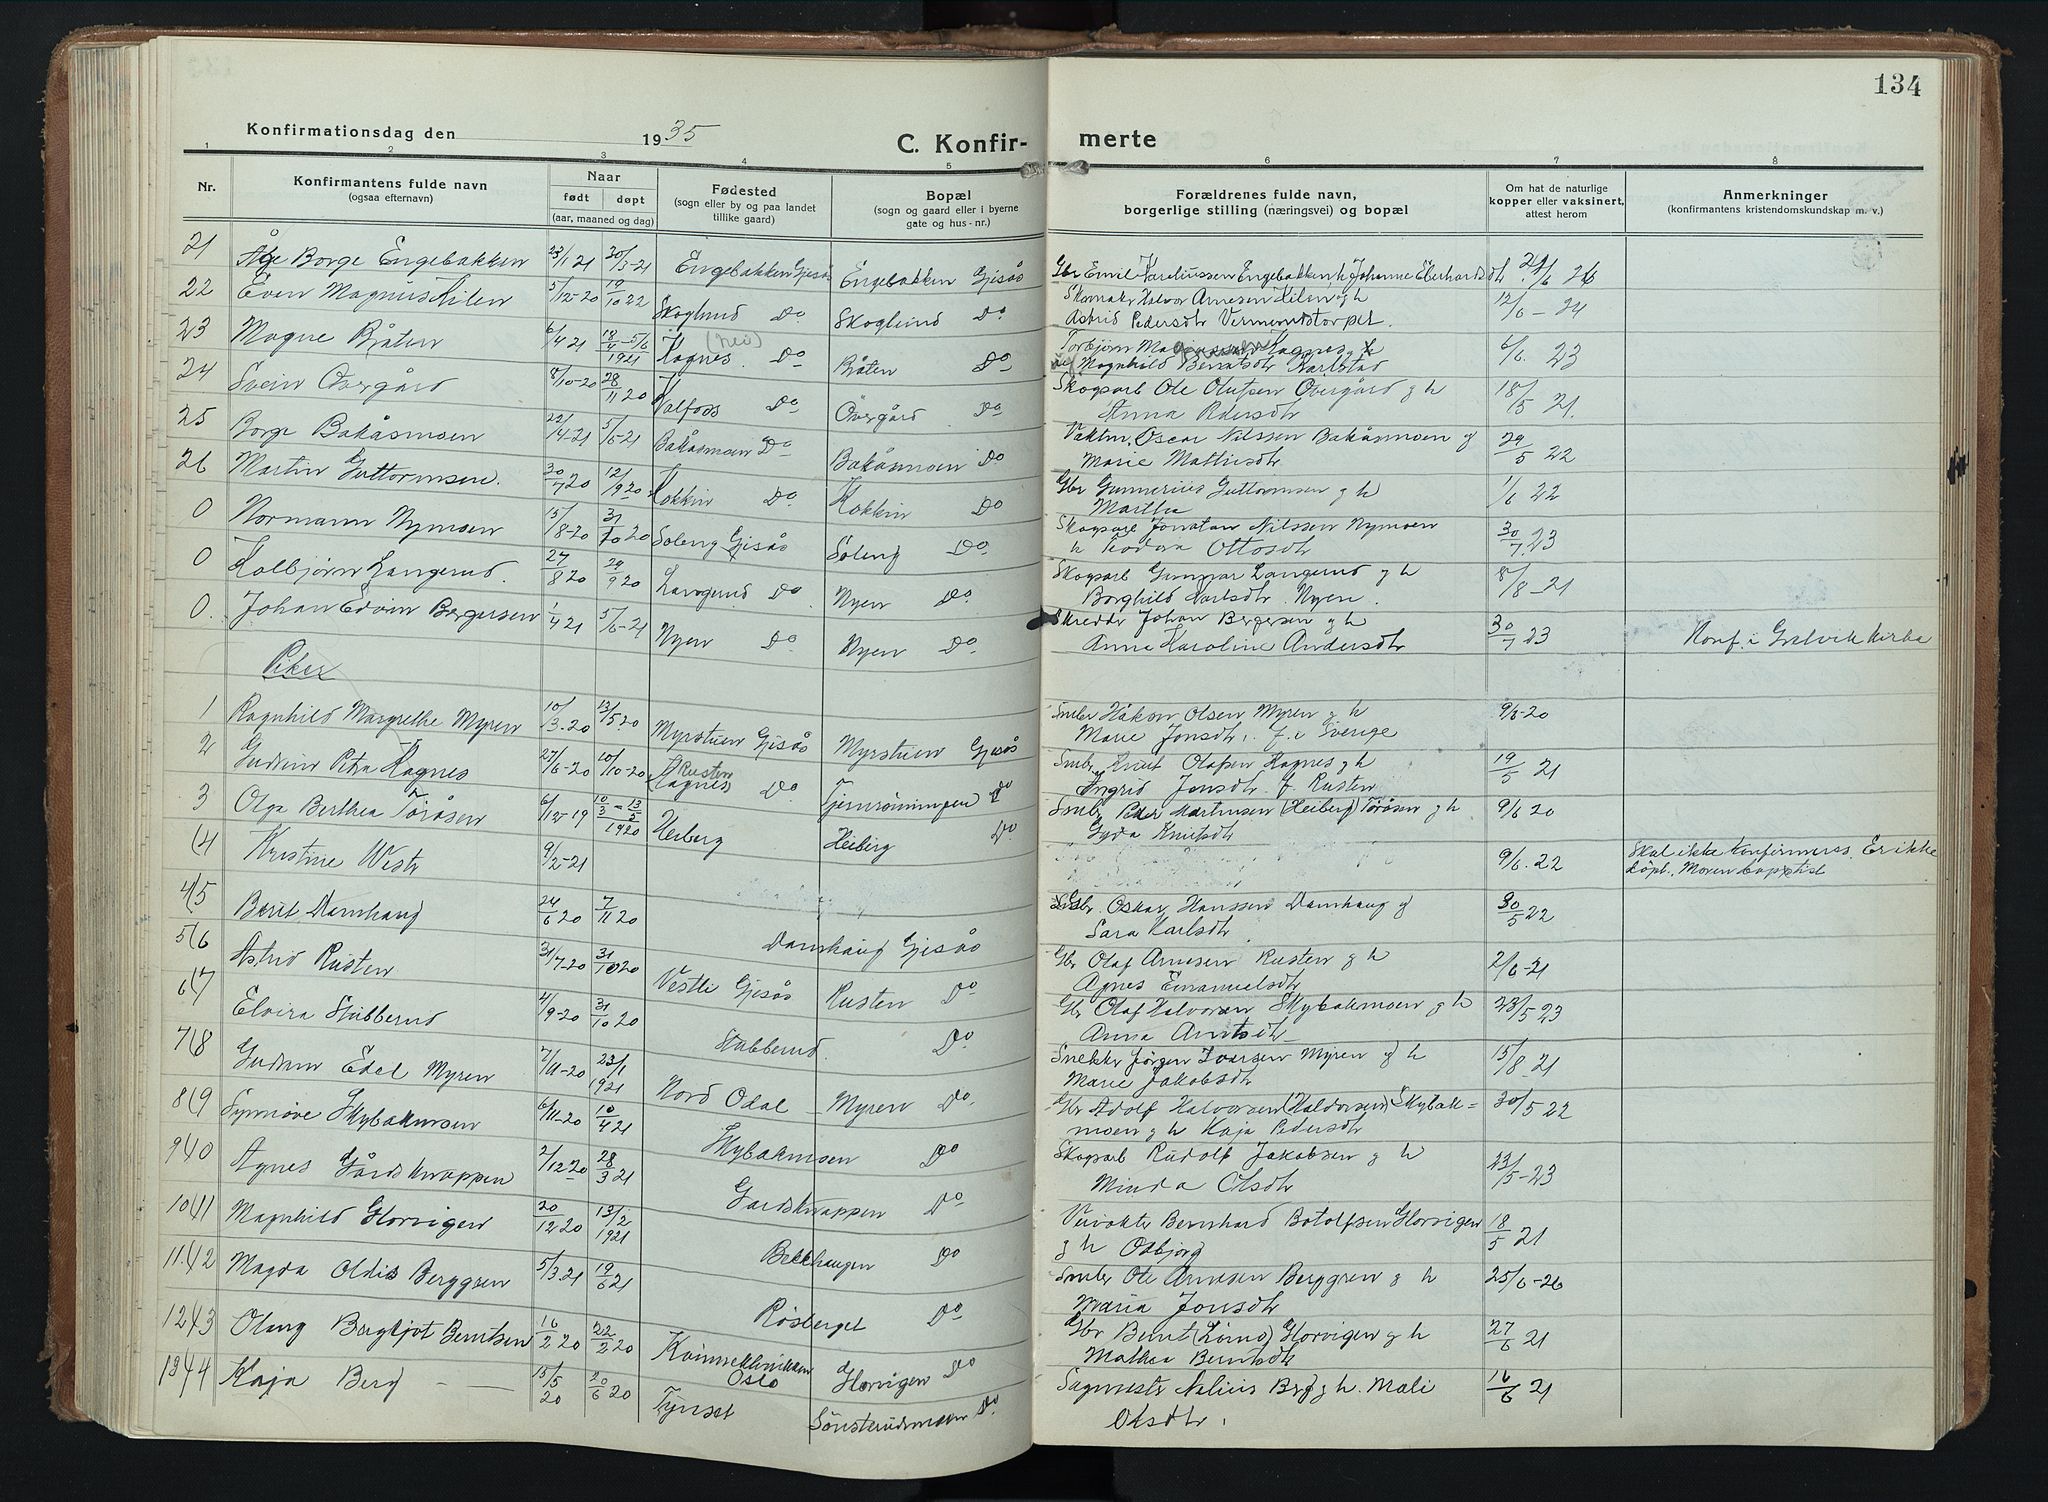 134
Konfirmationsdag den 1935
C. Konfir- merte
1 2 3 4 5 6 7 8
Nr.
Konfirmantens fulde navn
(ogsaa efternavn)
Naar
født døpt
(aar, maaned og dag)
Fødested
(sogn eller by og paa landet
tillike gaard)
Bopæl
(sogn og gaard eller i byerne
gate og hus-nr.)
Forældrenes fulde navn,
borgerlige stilling (næringsvei) og bopæl
Om hat de naturlige
kopper eller vaksinert,
attest herom
Anmerkninger
(konfirmantens kristendomskundskap m. v.)
21 Åge Borge Engebakken 23/1 21 30/3-21 Engebakken Gjesås Engebakken Gjesås Gbr Emil Engebakken h Johanne Eberhardsdtr 29/6 26
22 Even Magnus Kilen 5/12-20 19/10 22 Skoglund Do Skoglund Do Skomaker Halvor Arnesen Kilen og h
Astrid Pedersdtr Vermundstorpet. 12/6-24
23 Magne Bråten 6/4 21 18/4-5/6 1921 (nei) Hagnes Do Bråten Do Torbjørn Hagnes, h
Magnhild Berntsdtr Karlstad 6/6 23
24 Svein Overgård 8/10-20 28/11 20 Kalfoss Do Overgård Do Skogsarb Ole Olufsen Overgård g h
Anna Pedersdtr 18/5 21.
25 Borge Bakåsmoen 22/14-21 5/6-21 Bakåsmoen Do Bakåsmoen Do Vaktm. Oscar Nilssen Bakåsmoen g
Marie Mathisdtr 29/5 22
26 Martin Guttormsen. 30/7 20 12/19 20 Kokkin Do Kokkin Do Gbr Gunnerius Guttormsen g h
Martha 1/6 22
0 Normann Nymoen 15/8-20 31/10 20 Soleng Gjesås Soleng Do Skogsarb Jonatan Nilssen Nymoen
h Teodora Ottosdtr 30/7 23
0 Kolbjørn Langerud. 27/8 20 29/9 20 Langerud Do Nyen Do Skogsarb Gunnar Langerud g h
Borghild Karlsdtr Nyen. 8/8-21
0. Johan Edvin Bergersen 1/4 21 5/6-21 Nyen Do Nyen Do Skredder Johan Bergersen g h
Anna Karoline Andersdtr 30/7 23 Konf. i Gralvik kirke
Piker
1 Ragnhild Margrethe Myren 10/3-20 13/5 20 Myrstuen Gjesås Myrstuen Gjesås Småbr Håkon Olsen Myren g h
Marie Jonsdtr. f. i Sverige 9/6-20
2 Gudrun Petra Hagnes 27/6-20 10/10-20 Rusten Hagnes Do Tjernrømningen Do Småbr Knut Olafsen Hagnes g h
Ingrid Jonsdtr f. Rusten 19/5 21
3 Olga Berthea Toråsen 6/12-19 10/3-13/5 1920 Heiberg Heiberg Do Småbr Peder Martinsen (Heiberg) Toråsen g h
Gyda Knutsdtr 9/6 20
(4 Kristine Westr 9/2-21 9/6. 22 Skal ikke konfirmeres. Er ikke
døpt. Moren baptist
4(5 Berit Damhaug 24/6 20 7/11 20 Damhaug Gjesås Gbr. Oskar Hanssen Damhaug g
Sara Karlsdtr 30/5 22
5(6 Astrid Rusten 31/7-20 31/10 20 Vestli Gjesås Rusten Do Gbr Olaf Arnesen Rusten g h
Agnes Emanuelsdtr 2/6-21
6(7 Elvira Stubberud 4/9-20 31/10 20 Stubberud. Do Gbr Olaf Halvorsen Skybakmoen g h
Anna Arntsdtr 23/5 23
7(8 Gudrun Edel Myren 7/11-20 23/1 1921 Nord Odal Myren Do. Snekker Jørgen Iversen Myren g h
Marie Jakobsdtr 15/8 21
8(9 Synnøve Skybakmoen 6/11-20 10/4 21 Skybakmoen Do Gbr Adolf Halvorsen (Haldorsen) Skybak=
moen g h Kaja Pedersdtr 30/5 22
9(10 Agnes Gårdsknappen 2/12 20 28/3 21 Gardsknappen Do Skogsarb Rudolf Jakobsen g h
Minda Olsdtr 23/5-23
10(11 Magnhild Horvigen 20/12 20 13/2 1921 Bekkhaugen Do Bernhard Botolfsen Horvigen
g h Odbjørg 18/5 21
11(12 Magda Oldis Berggren 5/3 21 19/6 21 Røsberget Do Småbr Ole Arnesen Berggren g h
Maria Jonsdtr 25/6-26
12(13 Olaug Bergljot Berntsen 16/2 20 22/2 20 Kvinneklinikken
Oslo Horvigen Do Gbr Bernt (Löund) Horvigen g h
Mathea Berntsdtr 27/6 21
13(14 Kaja Berg 15/5 20 20/6 20 Tynset Sönsterudsmoen Do. Sagmester Nelius Berg g h. Mali
Olsdtr. 16/6 21